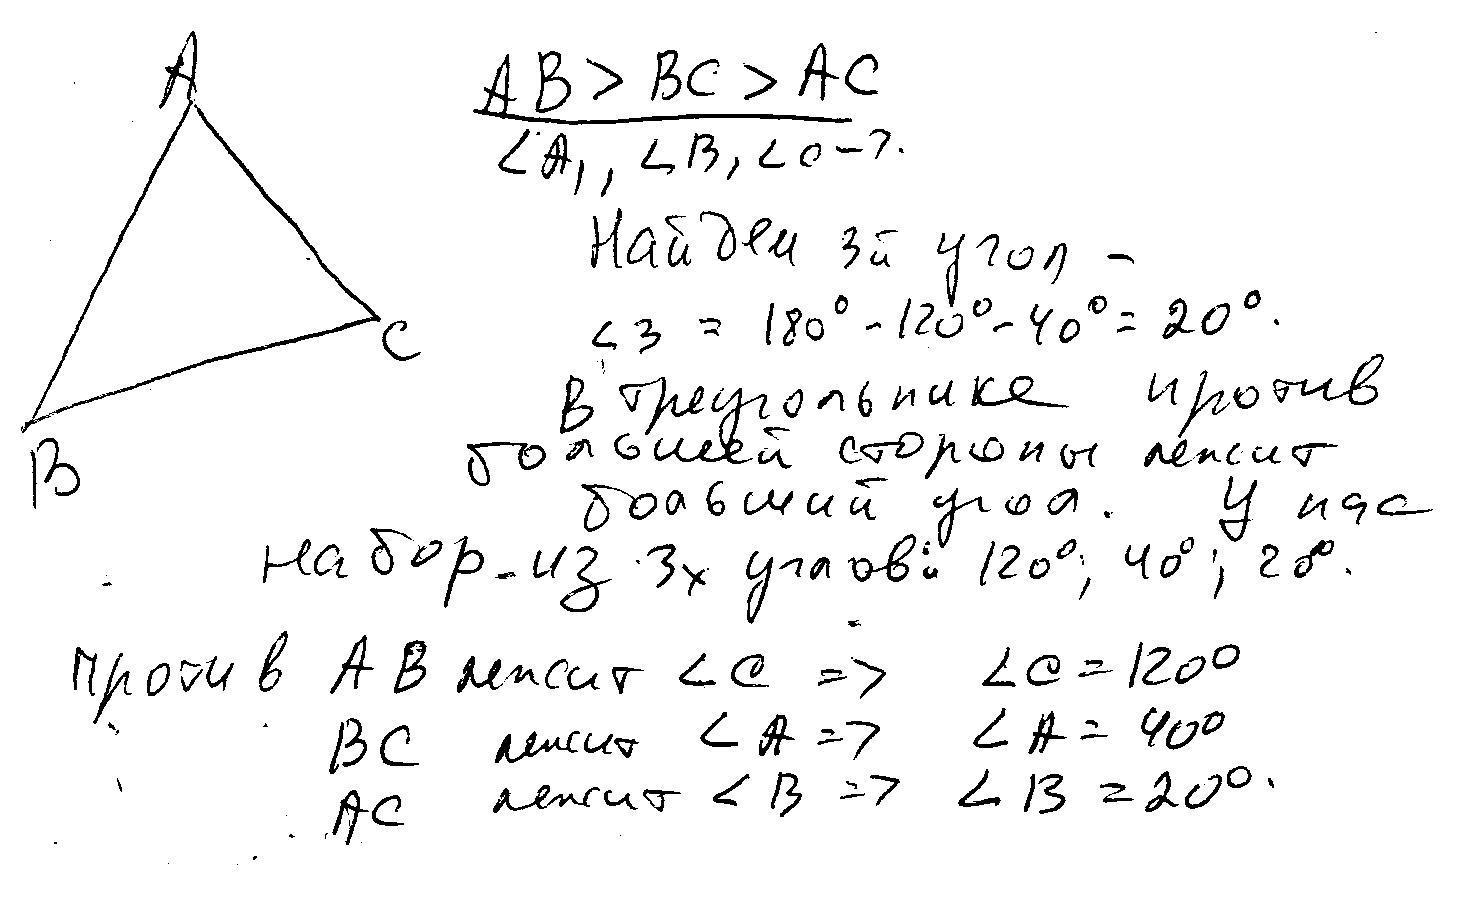 A
C
B
AB > BC > AC
∠A,, ∠B, ∠C - ?.
Найдем 3й угол -
∠3 = 180° - 120° - 40° = 20°.
В треугольнике против
большей стороны лежит
больший угол. У нас
набор - из 3х углов: 120°; 40°; 20°.
Против AB лежит ∠C => ∠C = 120°
BC лежит ∠A => ∠A = 40°
AC лежит ∠B => ∠B = 20°.